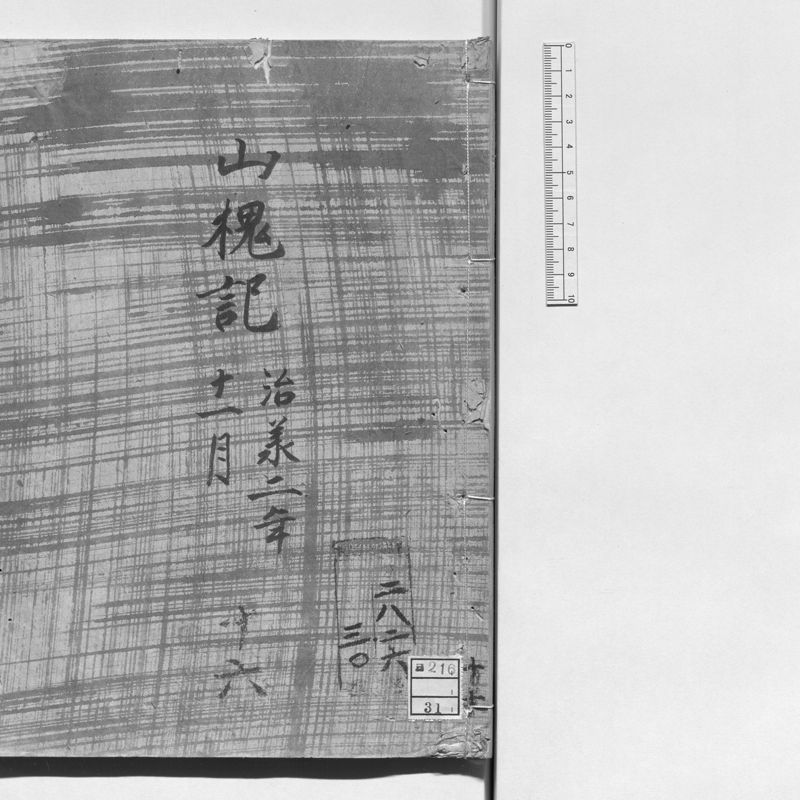 山槐記
治承二年
十一月
十六
二八二六
三〇
a216
31
0 1 2 3 4 5 6 7 8 9 10